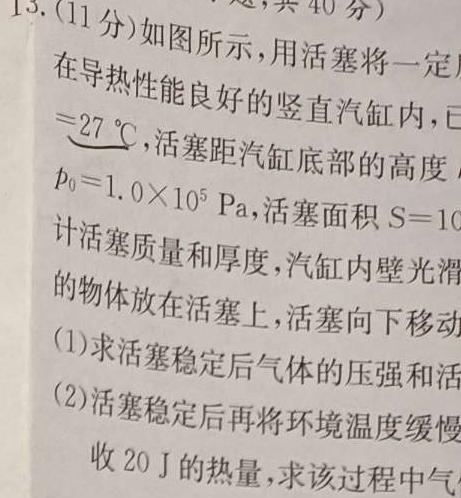 共 40 分)
13.(11 分)如图所示,用活塞将一定
在导热性能良好的竖直汽缸内,已
=27 ℃,活塞距汽缸底部的高度
p₀=1.0×10⁵ Pa,活塞面积 S=10
计活塞质量和厚度,汽缸内壁光滑
的物体放在活塞上,活塞向下移动
(1)求活塞稳定后气体的压强和活
(2)活塞稳定后再将环境温度缓慢
收 20 J 的热量,求该过程中气